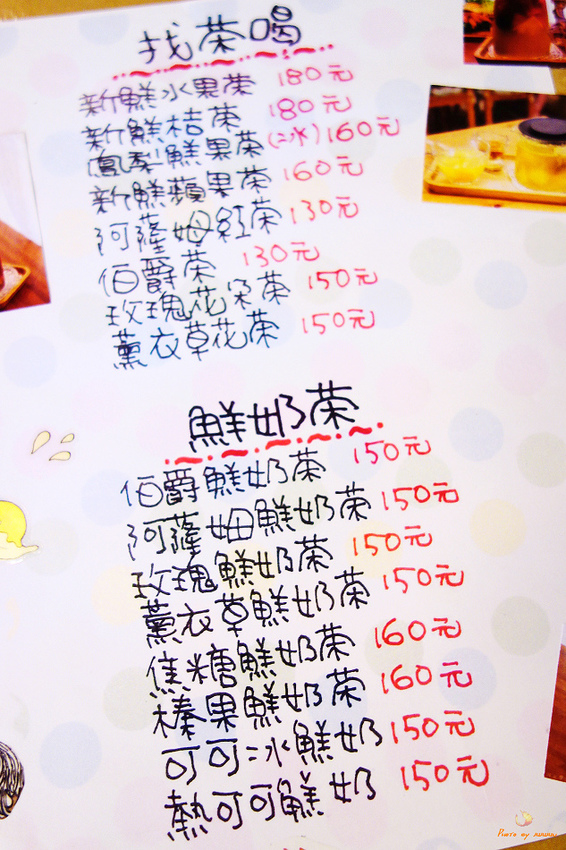 找茶喝
新鮮水果茶 180元
新鮮桔茶 180元
鳳梨鮮果茶(冰) 160元
新鮮蘋果茶 160元
阿薩姆紅茶 130元
伯爵茶 130元
玫瑰花朵茶 150元
薰衣草花茶 150元
鮮奶茶
伯爵鮮奶茶 150元
阿薩姆鮮奶茶 150元
玫瑰鮮奶茶 150元
薰衣草鮮奶茶 150元
焦糖鮮奶茶 160元
榛果鮮奶茶 160元
可可冰鮮奶 150元
熱可可鮮奶 150元